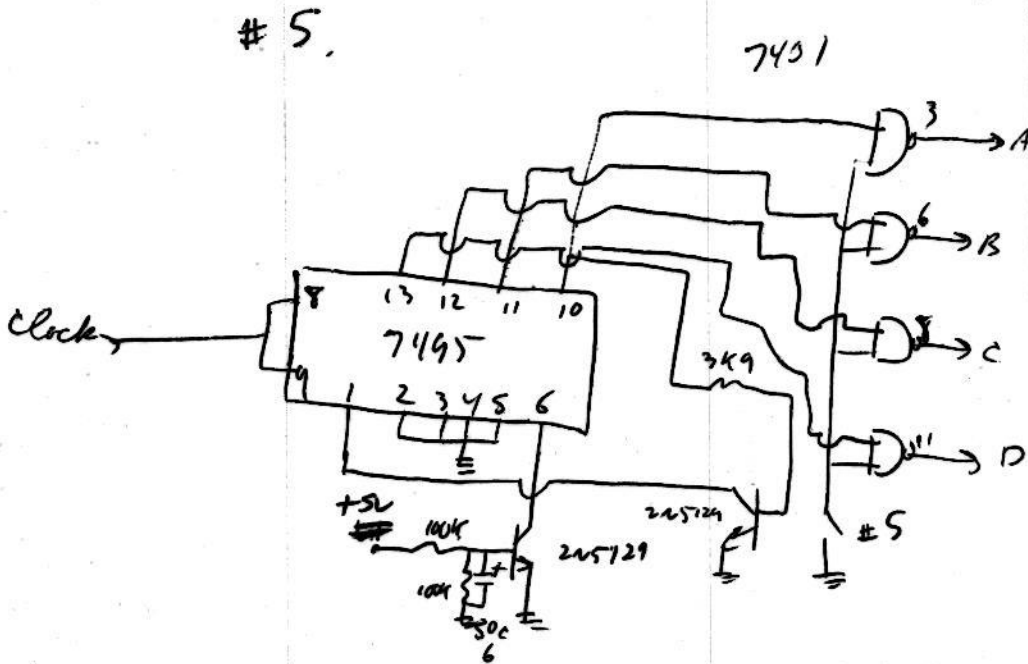 # 5.
7401
3
A
6
B
8
C
11
D
Clock
8
9
13
12
11
10
7495
1
2
3
4
5
6
3K9
+5V
100K
100K
2N5129
2N5129
# 5
6